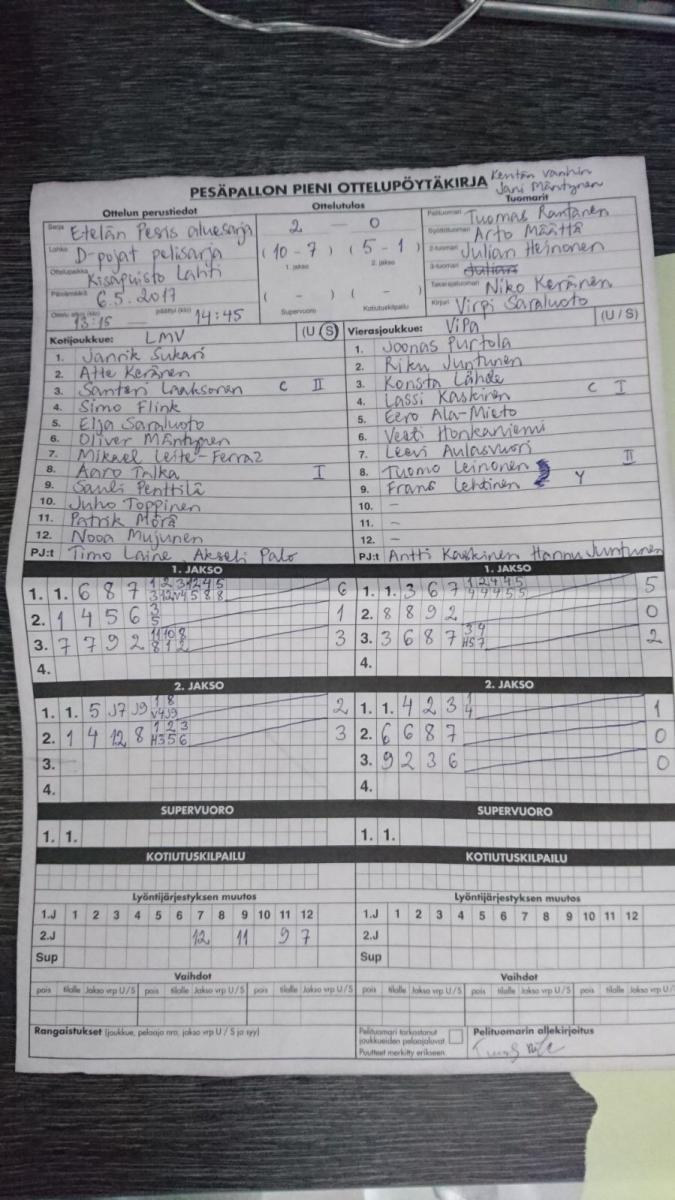 PESÄPALLON PIENI OTTELUPÖYTÄKIRJA
Kentän vanhin
Jani Mäntynen
Ottelun perustiedot
Ottelutulos
Tuomarit
Sarja Etelän Pesis aluesarja
2 — 0
Pelituomari Tuomas Rantanen
Lohko D-pojat pelisarja
(10 - 7) (5 - 1)
1. jakso 2. jakso
Syöttötuomari Arto Määttä
2-tuomari Julian Heinonen
Ottelupaikka Kisapuisto Lahti
3-tuomari Julian
Päivämäärä 6.5.2017
( - ) ( - )
Supervuoro Kotiutuskilpailu
Takarajatuomari Niko Keränen
Ottelu alkoi (klo) 13:15 — päättyi (klo) 14:45
Kirjuri Virpi Saraluoto
Kotijoukkue: LMV (U/S)
Vierasjoukkue: ViPa (U/S)
1. Jannik Sukari
2. Atte Keränen
3. Santeri Laaksonen C II
4. Simo Flink
5. Elja Saraluoto
6. Oliver Mäntynen
7. Mikael Leite-Ferraz
8. Aaro Talka I
9. Sauli Penttilä
10. Juho Toppinen
11. Patrik Mörä
12. Nooa Mujunen
PJ:t Timo Laine Akseli Palo
1. Joonas Purtola
2. Riku Juntunen
3. Konsta Lähde
4. Lassi Kaskinen C I
5. Eero Ala-Mieto
6. Vesti Honkaniemi
7. Leevi Aulasvuori II
8. Tuomo Leinonen
9. Frans Lehtinen Y
10. –
11. –
12. –
PJ:t Antti Kaskinen Hannu Juntunen
1. JAKSO
1. 1. 6 8 7 6
2. 1 4 5 6 3 5 1
3. 7 7 9 2 11 10 8 8 1 2 3
4.
1. JAKSO
1. 1. 3 6 7 5
2. 8 8 9 2 0
3. 3 6 8 7 3 4 H5 7 2
4.
2. JAKSO
1. 1. 5 J7 J9 1 8 V4 J9 2
2. 1 4 12 8 1 2 3 H3 5 6 3
3.
4.
2. JAKSO
1. 1. 4 2 3 1 4 1
2. 6 6 8 7 0
3. 9 2 3 6 0
4.
SUPERVUORO
1. 1.
SUPERVUORO
1. 1.
KOTIUTUSKILPAILU
KOTIUTUSKILPAILU
Lyöntijärjestyksen muutos
1.J 1 2 3 4 5 6 7 8 9 10 11 12
2.J 12 11 9 7
Sup
Lyöntijärjestyksen muutos
1.J 1 2 3 4 5 6 7 8 9 10 11 12
2.J
Sup
Vaihdot
pois tilalle Jakso vrp U/S pois tilalle Jakso vrp U/S pois tilalle Jakso vrp U/S
Vaihdot
pois tilalle Jakso vrp U/S pois tilalle Jakso vrp U/S pois tilalle Jakso vrp U/
Rangaistukset (joukkue, pelaaja nro, jakso vrp U / S ja syy)
Pelituomari tarkastanut
joukkueiden pelaajaluvat.
Puutteet merkitty erikseen.
Pelituomarin allekirjoitus